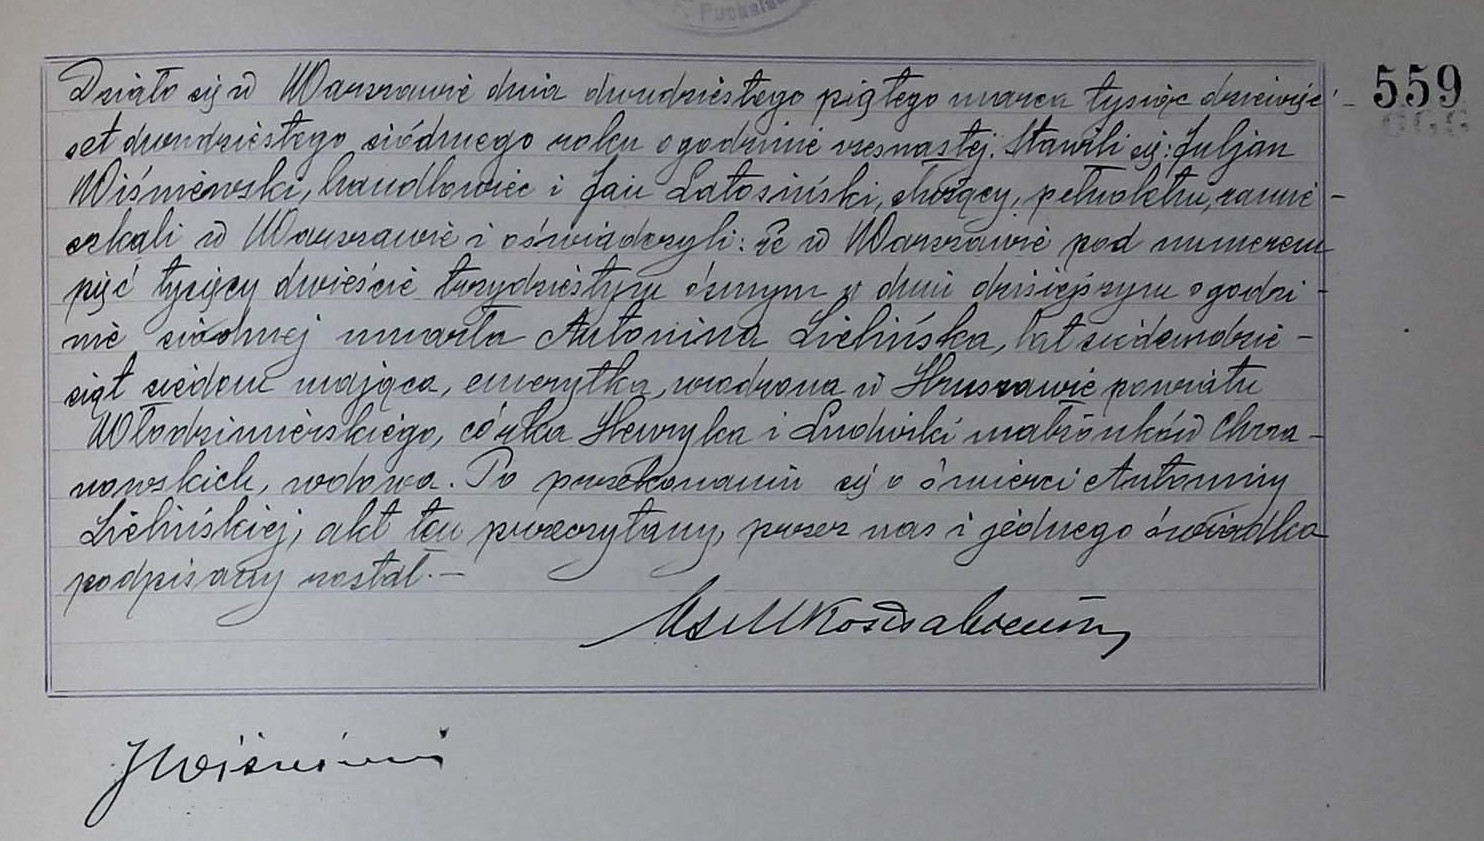 Puchalsk
559
Działo się w Warszawie dnia dwudziestego piątego marca tysiąc dziewięć-
set dwudziestego siódmego roku o godzinie szesnastej. Stawili się: Juljan
Wiśniewski, handlowiec i Jan Latosiński, służący, pełnoletni, zamie-
szkali w Warszawie i oświadczyli: że w Warszawie pod numerem
pięć tysięcy dwieście trzydziestym ósmym w dniu dzisiejszym o godzi-
nie siódmej umarła Antonina Lielińska, lat siedemdzie-
siąt siedem mająca, emerytka, urodzona w Hruszawie powiatu
Włodzimierskiego, córka Henryka i Ludwiki małżonków Chrza-
nowskich, wdowa. Po przekonaniu się o śmierci Antoniny
Lielińskiej, akt ten przeczytany, przez nas i jednego świadka
podpisany został.-
JWiśniewski